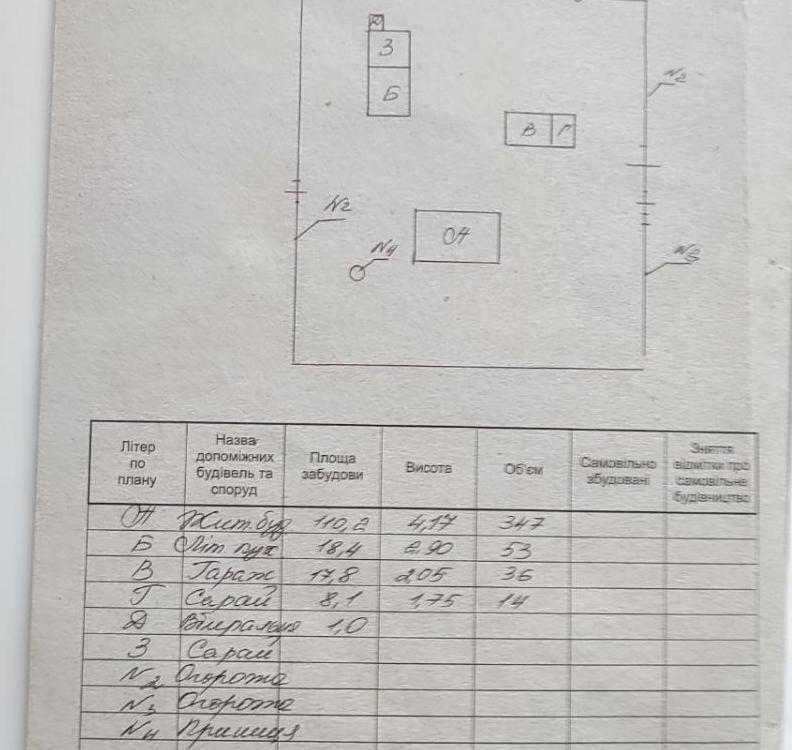 Д
З
Б
В Г
N2
N2
N4
ОН
N3
Літер по плану
Назва допоміжних будівель та споруд
Площа забудови
Висота
Об'єм
Самовільно збудовані
Зняття відмітки про самовільне будівництво
ОН Жит.буд 110,2 4,17 347
Б Літ. кух 18,4 2.90 53
В Гараж 17,8 2,05 36
Г Сарай 8,1 1,75 14
Д Вбиральня 1,0
З Сарай
N2 Огорожа
N3 Огорожа
N4 Криниця